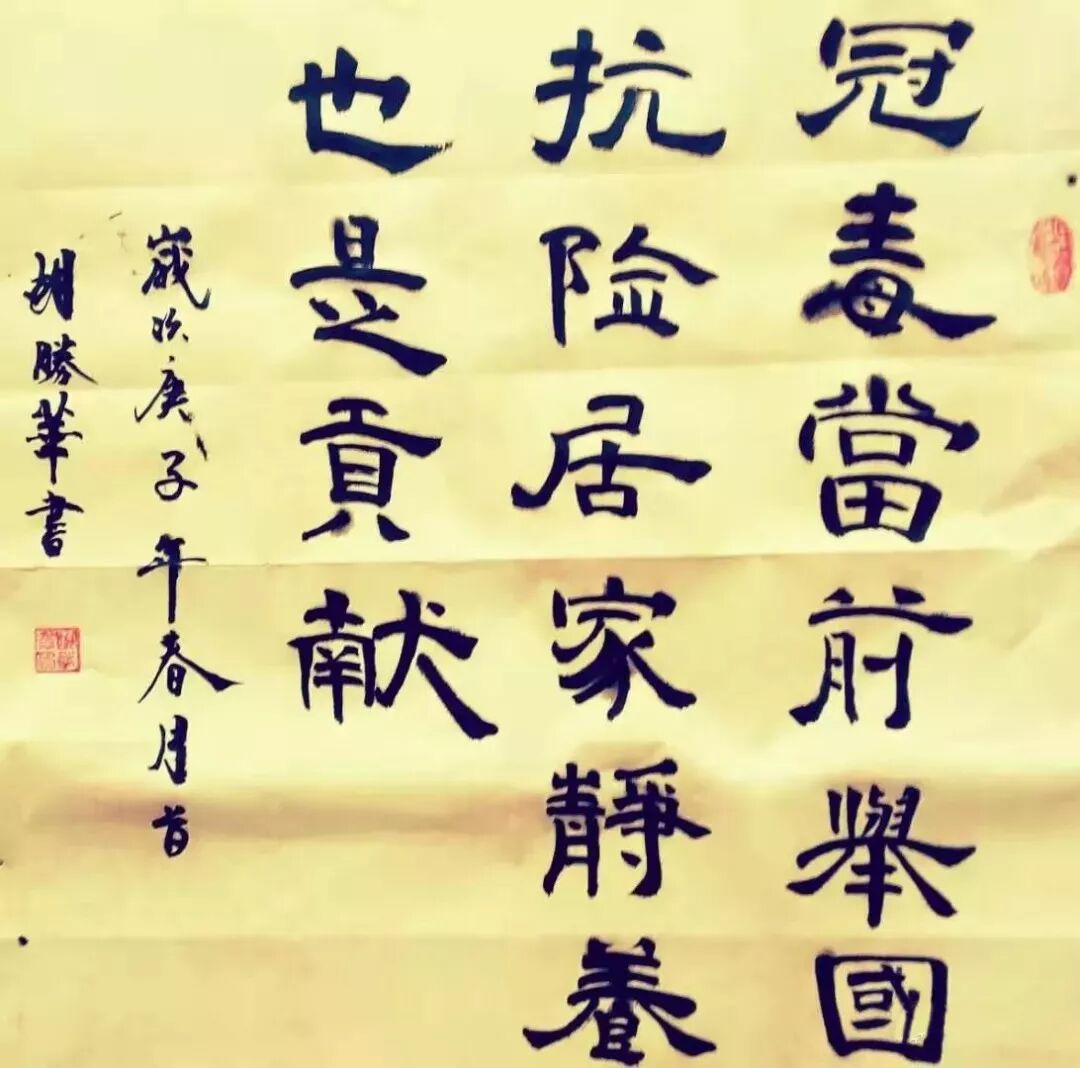 冠毒當前舉國
抗险居家靜養
也是貢献
歲次庚子年春月首
胡勝華書